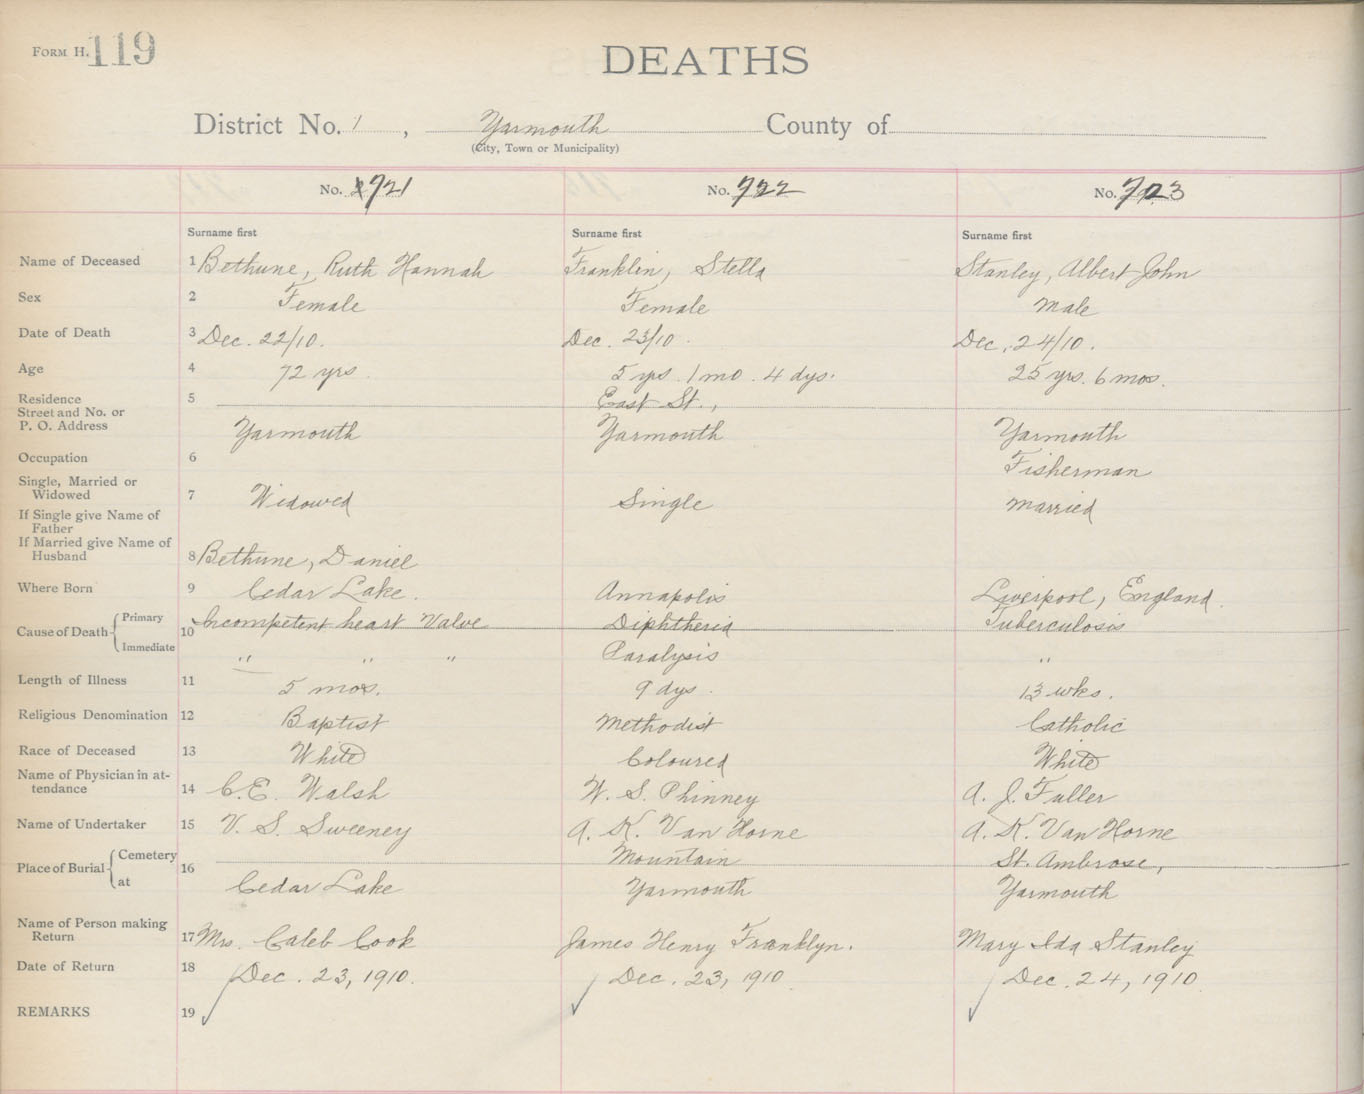 FORM H. 119
DEATHS
District No. 1, Yarmouth County of
(City, Town or Municipality)
No. 721 No. 722 No. 723
Surname first Surname first Surname first
Name of Deceased 1 Bethune, Ruth Hannah Franklin, Stella Stanley, Albert John
Sex 2 Female Female Male
Date of Death 3 Dec. 22/10. Dec. 23/10. Dec. 24/10.
Age 4 72 yrs. 5 yrs. 1 mo. 4 dys. 25 yrs. 6 mos.
Residence 5 East St.,
Street and No. or
P. O. Address Yarmouth Yarmouth Yarmouth
Occupation 6 Fisherman
Single, Married or
Widowed 7 Widowed Single Married
If Single give Name of
Father
If Married give Name of
Husband 8 Bethune, Daniel
Where Born 9 Cedar Lake. Annapolis Liverpool, England.
Cause of Death Primary 10 Incompetent heart Valve Diphtheria Tuberculosis
Immediate " " " Paralysis "
Length of Illness 11 5 mos. 9 dys. 13 wks.
Religious Denomination 12 Baptist Methodist Catholic
Race of Deceased 13 White Coloured White
Name of Physician in at-
tendance 14 C. E. Walsh W. S. Phinney A. J. Fuller
Name of Undertaker 15 V. S. Sweeney A. K. Van Horne A. K. Van Horne
Place of Burial Cemetery 16 Mountain St. Ambrose,
at Cedar Lake Yarmouth Yarmouth
Name of Person making
Return 17 Mrs. Caleb Cook James Henry Franklyn. Mary Ida Stanley
Date of Return 18 Dec. 23, 1910. Dec. 23, 1910. Dec. 24, 1910.
REMARKS 19